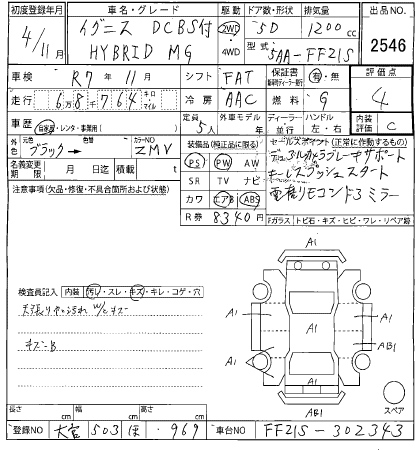 初度登録年月 車名・グレード 駆動 ドア数・形状 排気量 出品NO
4/11 イグニス DCBS付 2WD 5D 1200 cc 2546
HYBRID MG 4WD 型式 5AA-FF21S
車検 R7年 11月 シフト FAT 保証書 有・無 評価点
走行 6万8千764 キロ マイル 冷房 AAC 燃料 G 4
車歴 自家用・レンタ・事業用( ) 定員 5人 外車モデル年 ディーラー 並行 ハンドル 左・右 内装評価 C
色 元色 ブラック→ カラーNO ZMV 装備品(純正品に限る) セールスポイント(正常に作動するもの)
PS PW AW デュアルカメラブレーキサポート
名義変更期限 月 日迄 積載 t SR TV ナビ キーレスプッシュスタート
注意事項(欠品・修復・不具合箇所および状態) カワ エアB ABS 電格リモコンドアミラー
R券 8340円 Fガラス トビ石・キズ・ヒビ・ワレ・リペア跡
A1
A1 A1
検査員記入 内装 汚れ・スレ・キズ・キレ・コゲ・穴
A1 AB1
キズーB
A1
AB1
スペア
長さ cm 幅 cm 高さ cm
登録NO 大宮 503 ほ ・969 車台NO FF21S-302343